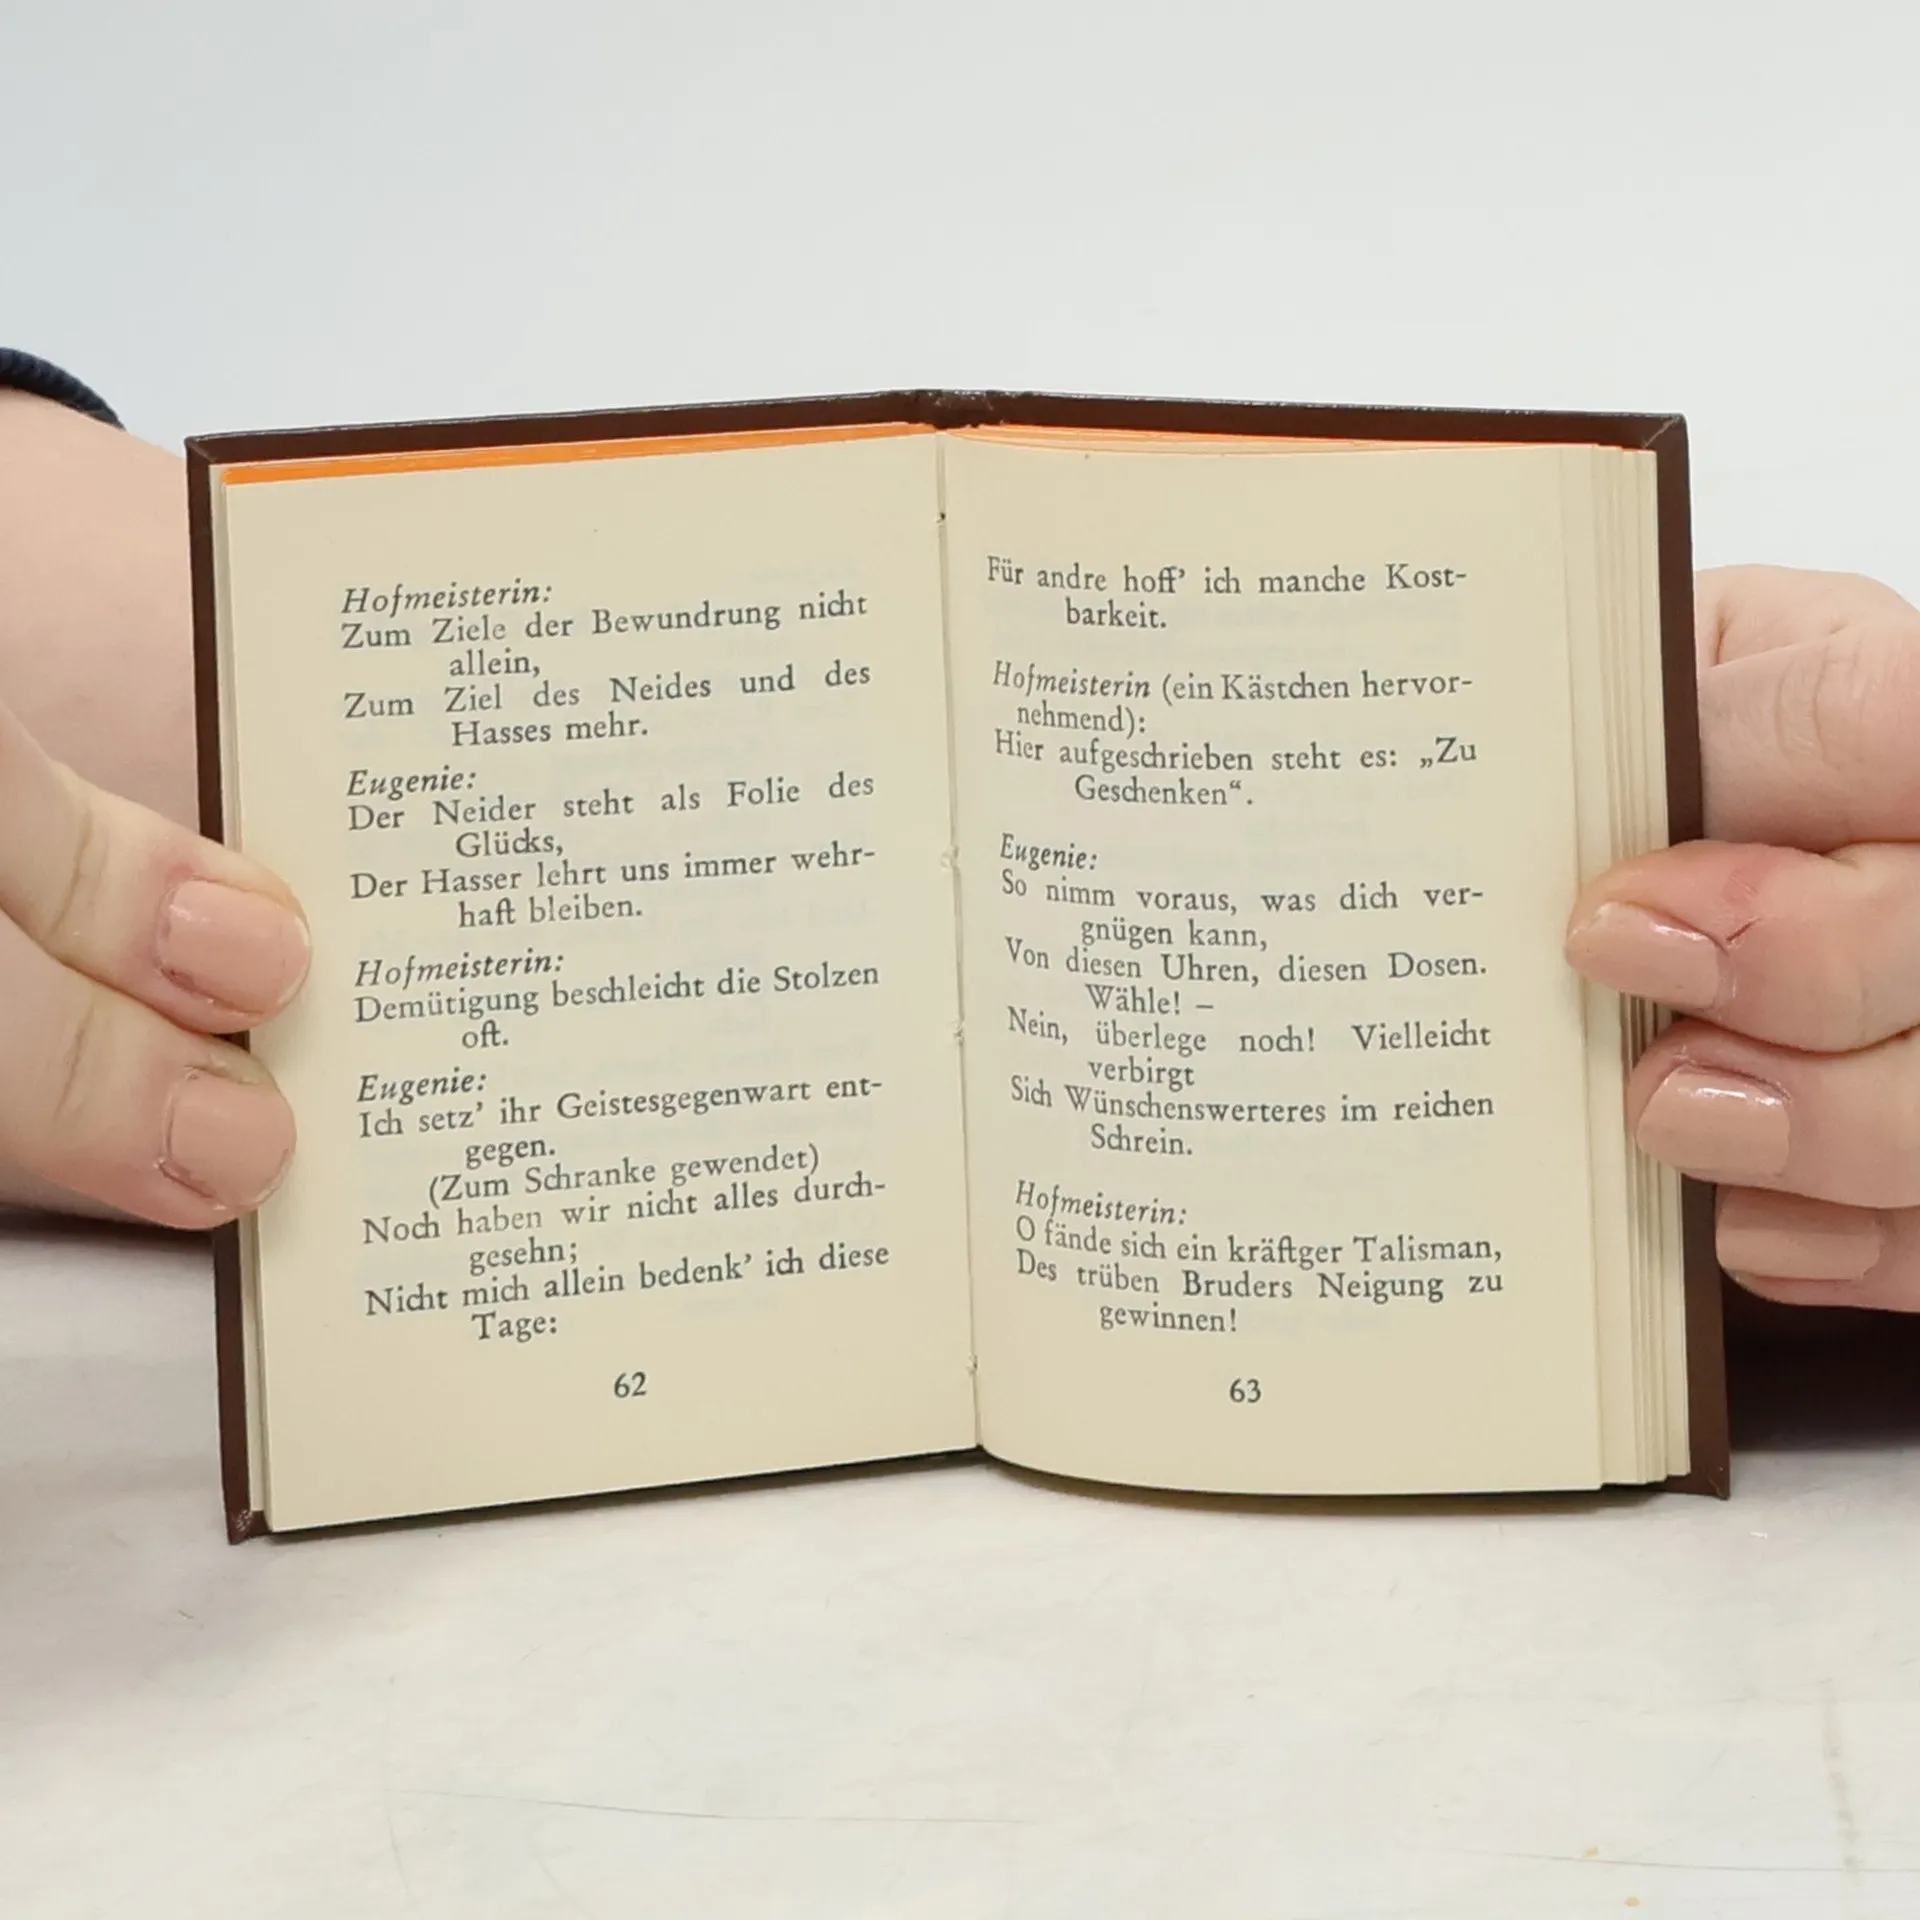 Hofmeisterin:
Zum Ziele der Bewundrung nicht
allein,
Zum Ziel des Neides und des
Hasses mehr.
Eugenie:
Der Neider steht als Folie des
Glücks,
Der Hasser lehrt uns immer wehr-
haft bleiben.
Hofmeisterin:
Demütigung beschleicht die Stolzen
oft.
Eugenie:
Ich setz’ ihr Geistesgegenwart ent-
gegen.
(Zum Schranke gewendet)
Noch haben wir nicht alles durch-
gesehn;
Nicht mich allein bedenk’ ich diese
Tage:
62
Für andre hoff’ ich manche Kost-
barkeit.
Hofmeisterin (ein Kästchen hervor-
nehmend):
Hier aufgeschrieben steht es: „Zu
Geschenken“.
Eugenie:
So nimm voraus, was dich ver-
gnügen kann,
Von diesen Uhren, diesen Dosen.
Wähle! –
Nein, überlege noch! Vielleicht
verbirgt
Sich Wünschenswerteres im reichen
Schrein.
Hofmeisterin:
O fände sich ein kräftger Talisman,
Des trüben Bruders Neigung zu
gewinnen!
63